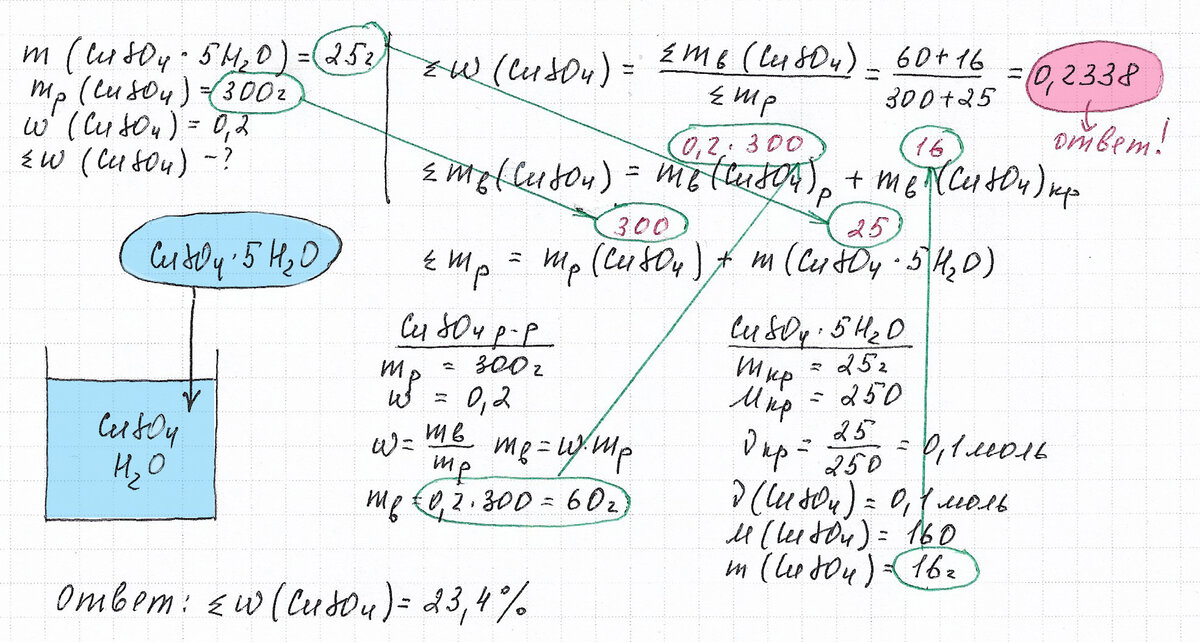 m (CuSO₄ · 5H₂O) = 25г
mр (CuSO₄) = 300г
w (CuSO₄) = 0,2
Σw (CuSO₄) – ?
Σw (CuSO₄) = Σmв (CuSO₄) / Σmр = 60+16 / 300+25 = 0,2338
ответ!
0,2 · 300
16
Σmв(CuSO₄) = mв(CuSO₄)р + mв(CuSO₄)кр
300
25
Σmр = mр(CuSO₄) + m(CuSO₄ · 5H₂O)
CuSO₄ · 5H₂O
CuSO₄
H₂O
CuSO₄ р-р
mр = 300г
w = 0,2
w = mв / mр mв = w · mр
mв = 0,2 · 300 = 60г
CuSO₄ · 5H₂O
mкр = 25г
Mкр = 250
νкр = 25 / 250 = 0,1 моль
ν(CuSO₄) = 0,1 моль
M(CuSO₄) = 160
m(CuSO₄) = 16г
Ответ: Σw (CuSO₄) = 23,4%